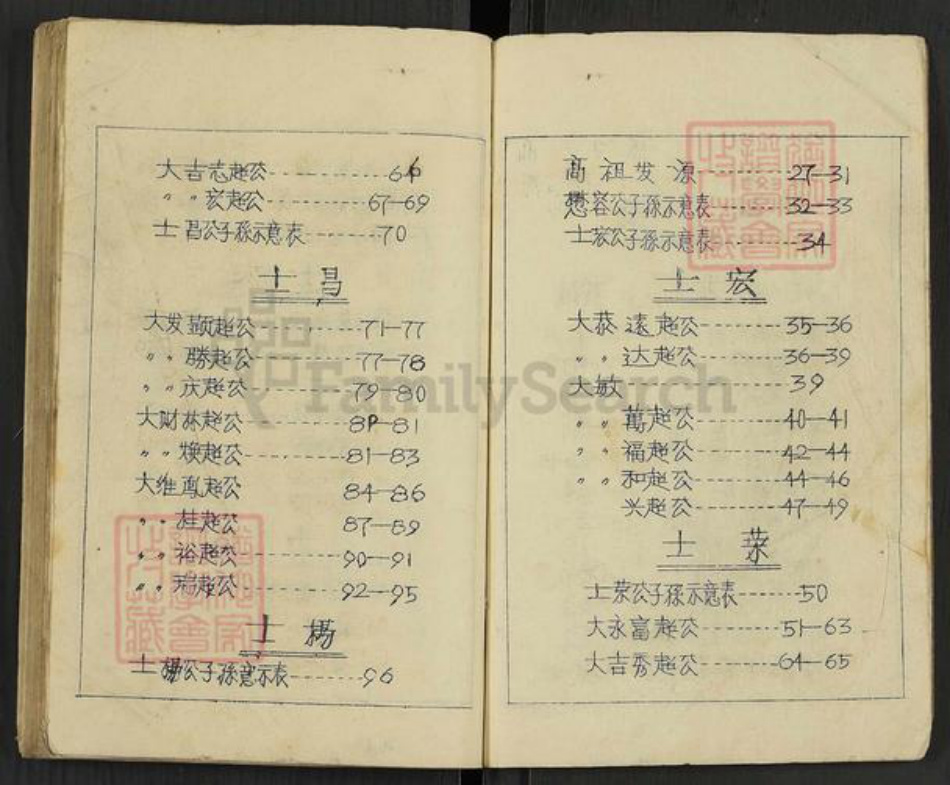 高祖发源--------27-31
懋容公子孫示意表----32-33
士宏公子孫示意表------34
士 宏
大恭遠超公--------35-36
〃〃达超公--------36-39
大敏--------39
〃〃萬超公--------40-41
〃〃福超公--------42-44
〃〃和超公--------44-46
兴超公--------47-49
士 荣
士荣公子孫示意表------50
大永富超公--------51-63
大吉秀超公--------64-65
大吉志超公--------66
〃〃宏超公--------67-69
士昌公子孫示意表------70
士 昌
大发顕超公--------71-77
〃〃勝超公--------77-78
〃〃庆超公--------79-80
大财林超公--------81
〃〃焕超公--------81-83
大维凤超公--------84-86
〃〃桂超公--------87-89
〃〃裕超公--------90-91
〃〃瑞超公--------92-95
士 楊
士楊公子孫意示表------96
FamilySearch